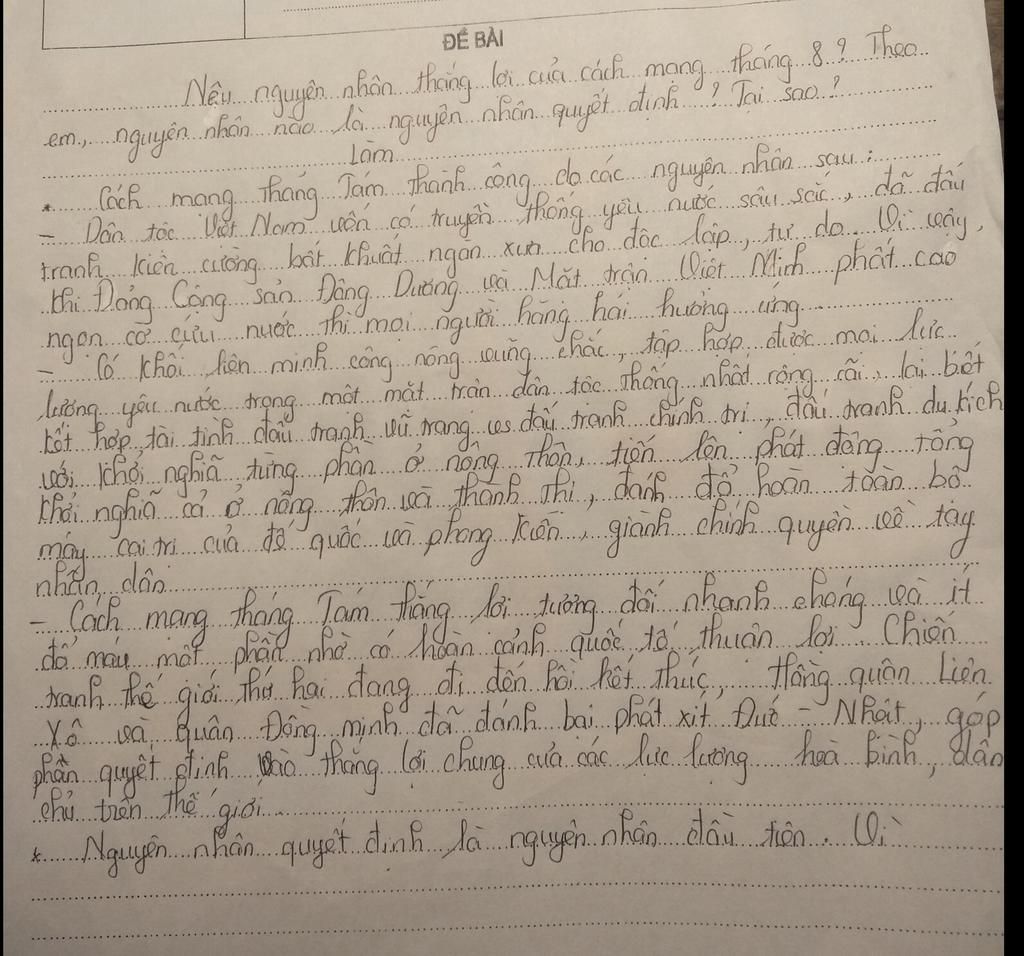 ĐỀ BÀI
Nêu nguyên nhân thắng lợi của cách mạng tháng 8? Theo
em, nguyên nhân nào là nguyên nhân quyết định? Tại sao?
Làm
* Cách mạng tháng Tám thành công do các nguyên nhân sau:
- Dân tộc Việt Nam vốn có truyền thống yêu nước sâu sắc, đã đấu
tranh kiên cường bất khuất ngàn xưa cho độc lập, tự do. Vì vậy,
khi Đảng Cộng sản Đông Dương và Mặt trận Việt Minh phất cao
ngọn cờ cứu nước thì mọi người hăng hái hưởng ứng.
- Có khối liên minh công nông vững chắc, tập hợp được mọi lực
lượng yêu nước trong một mặt trận dân tộc thống nhất rộng rãi, lại biết
kết hợp tài tình đấu tranh vũ trang vs đấu tranh chính trị, đấu tranh du kích
với khởi nghĩa từng phần ở nông thôn, tiến lên phát động tổng
khởi nghĩa cả ở nông thôn và thành thị, đánh đổ hoàn toàn bộ
máy cai trị của đế quốc và phong kiến, giành chính quyền về tay
nhân dân.
- Cách mạng tháng Tám thắng lợi tương đối nhanh chóng và ít
đổ máu một phần nhờ có hoàn cảnh quốc tế thuận lợi. Chiến
tranh thế giới thứ hai đang đi đến hồi kết thúc, Hồng quân Liên
Xô và quân Đồng minh đã đánh bại phát xít Đức - Nhật, góp
phần quyết định vào thắng lợi chung của các lực lượng hoà bình, dân
chủ trên thế giới.
* Nguyên nhân quyết định là nguyên nhân đầu tiên. Vì